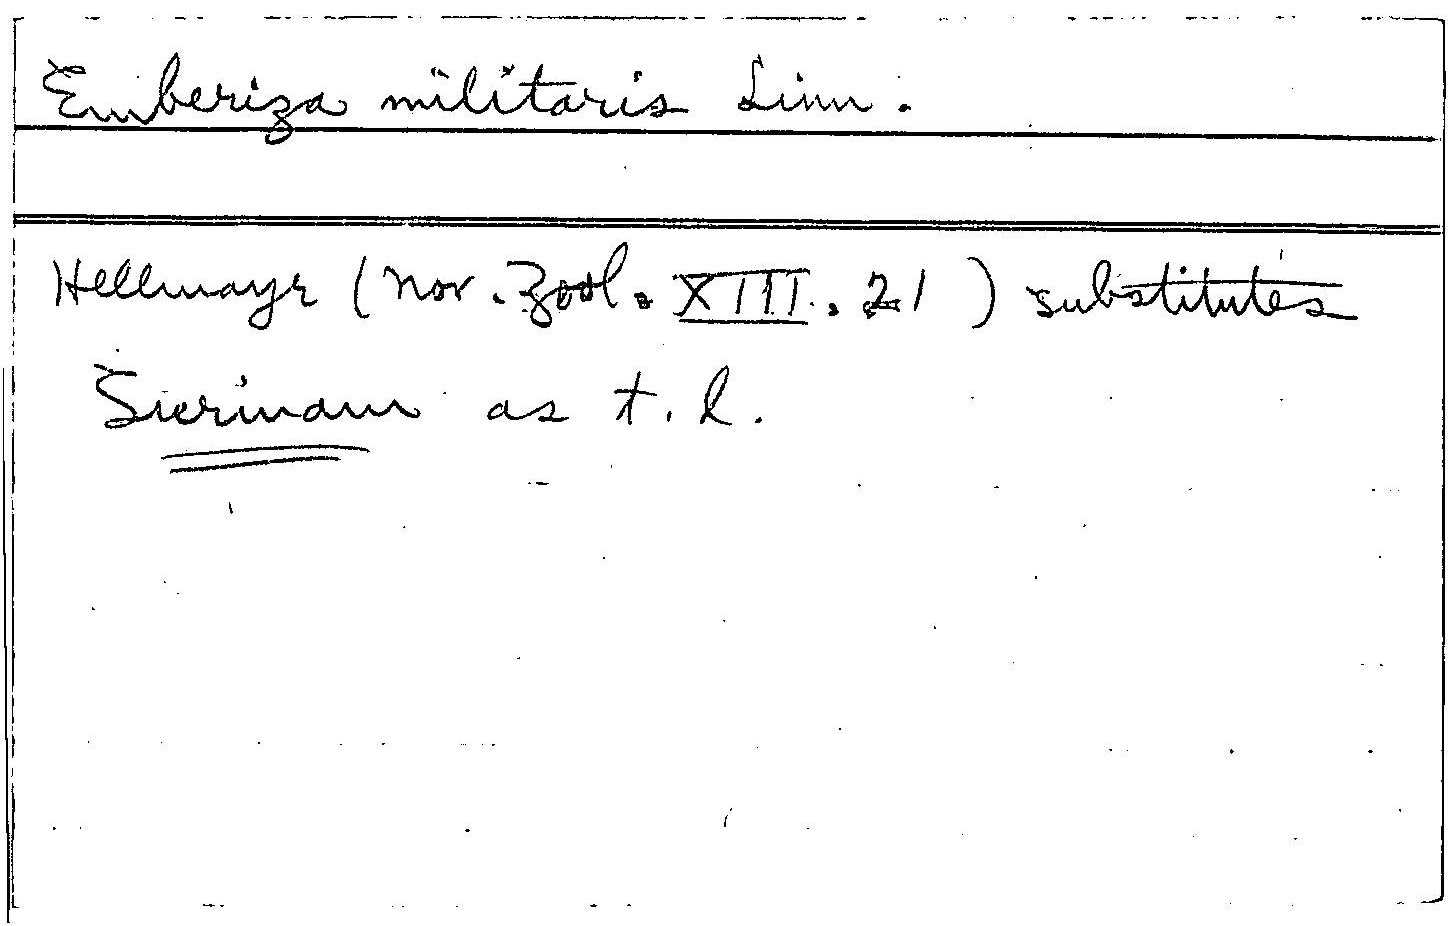 Emberiza militaris Linn.
Hellmayr (Nov. Zool. XIII. 21) substitutes
Surinam as t. l.